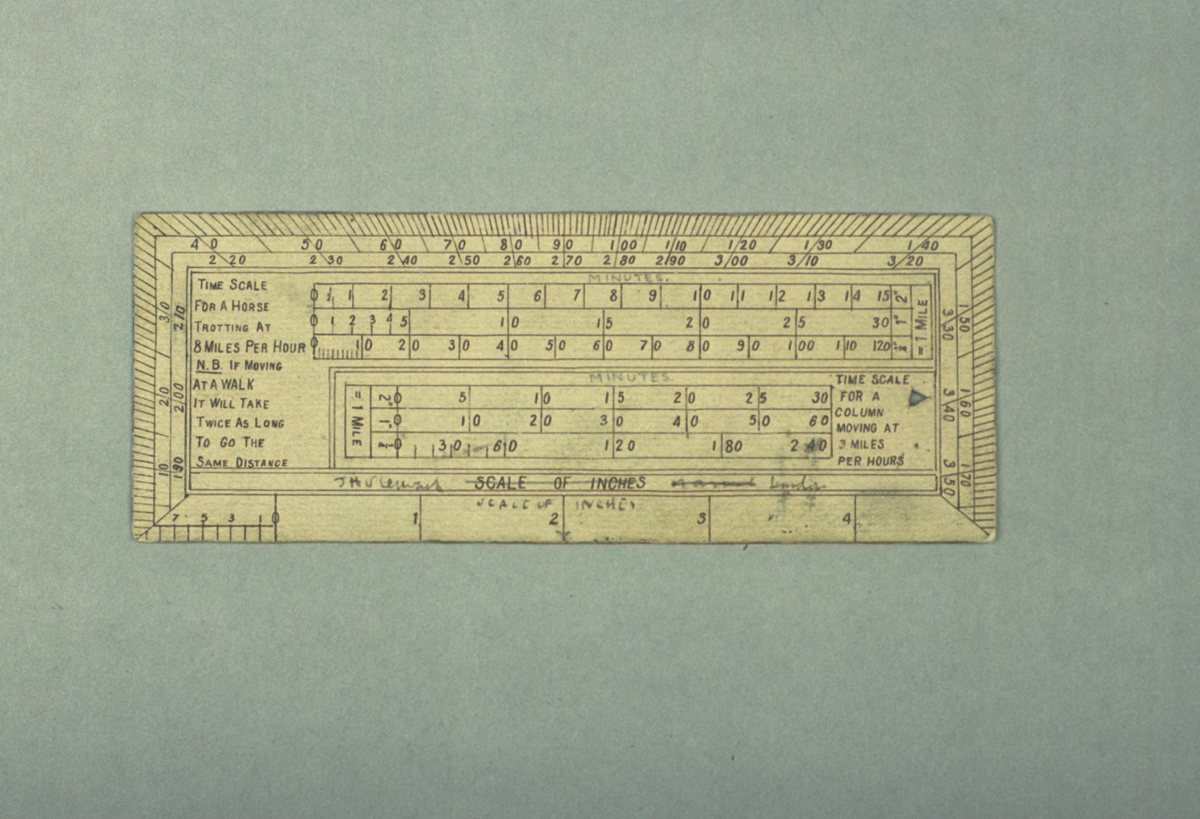 40 50 60 70 80 90 100 110 120 130 140
220 230 240 250 260 270 280 290 300 310 320
30 210
20 200
10 190
150 330
160 340
170 350
TIME SCALE
FOR A HORSE
TROTTING AT
8 MILES PER HOUR
N.B. IF MOVING
AT A WALK
IT WILL TAKE
TWICE AS LONG
TO GO THE
SAME DISTANCE
MINUTES.
0 ½ 1 2 3 4 5 6 7 8 9 10 11 12 13 14 15 2"
0 1 2 3 4 5 10 15 20 25 30 1"
0 10 20 30 40 50 60 70 80 90 100 110 120
= 1 MILE
MINUTES.
= 1 MILE
2" 0 5 10 15 20 25 30
1" 0 10 20 30 40 50 60
0 30 60 120 180 240
TIME SCALE
FOR A
COLUMN
MOVING AT
3 MILES
PER HOURS
SCALE OF INCHES
SCALE OF INCHES
7 5 3 1 0 1 2 3 4